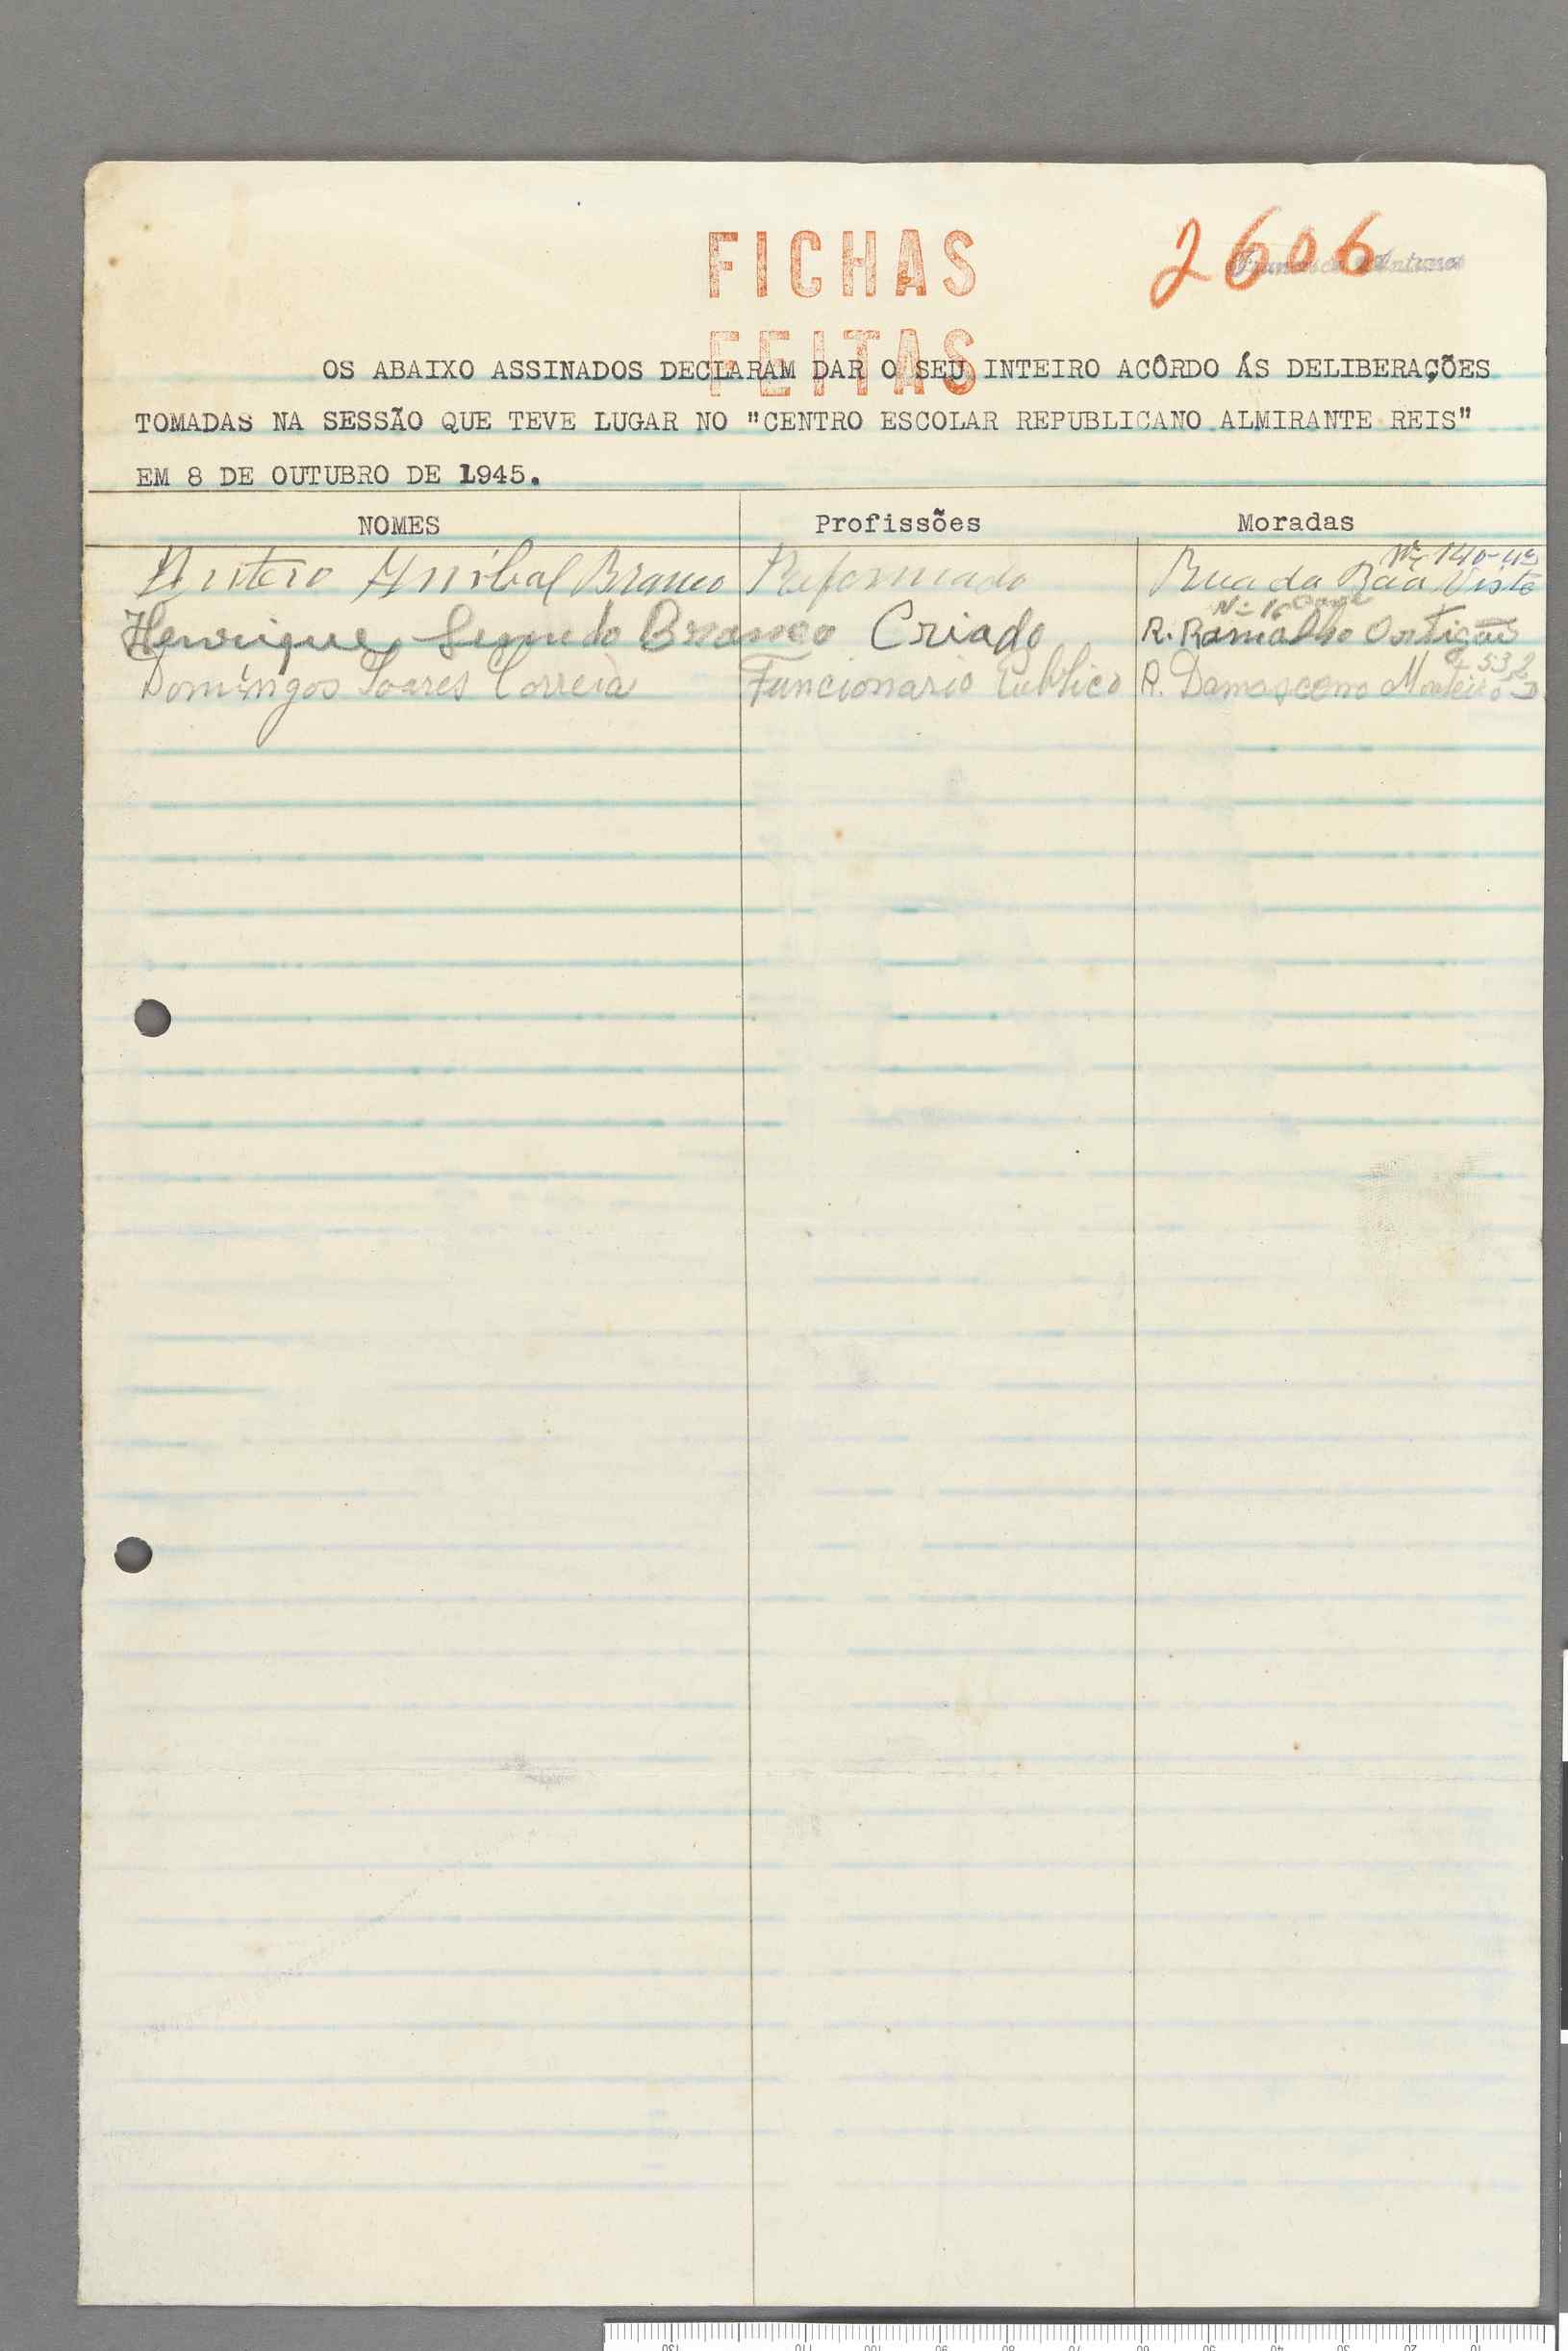 FICHAS
2606
FEITAS
OS ABAIXO ASSINADOS DECLARAM DAR O SEU INTEIRO ACÔRDO ÁS DELIBERAÇÕES
TOMADAS NA SESSÃO QUE TEVE LUGAR NO "CENTRO ESCOLAR REPUBLICANO ALMIRANTE REIS"
EM 8 DE OUTUBRO DE 1945.
NOMES Profissões Moradas
Antero Anibal Branco Reformado Rua da Boa Vista Nº 140-4º
Henrique Segundo Branco Criado R. Ramalho Ortigão Nº 16
Domingos Soares Correia Funcionario Publico R. Damasceno Monteiro